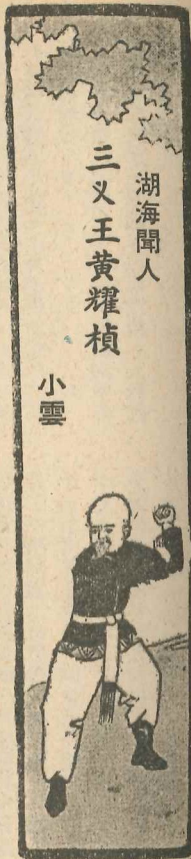 湖海聞人
三义王黄耀楨
小雲